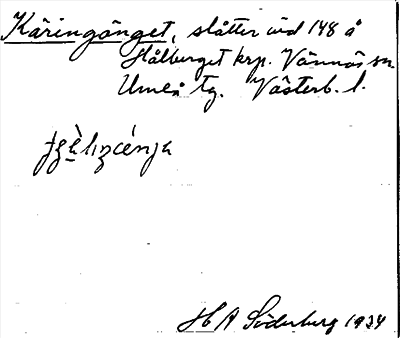 Käringänget, slåtter vid 148 å
Hålberget krp. Vännäs sn
Umeå tg. Västerb. l.
H A Söderberg 1934